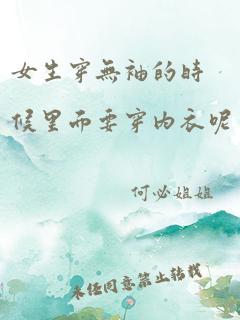 女生穿無袖的時
候里面要穿内衣呢
何必姐姐
未经同意禁止转载